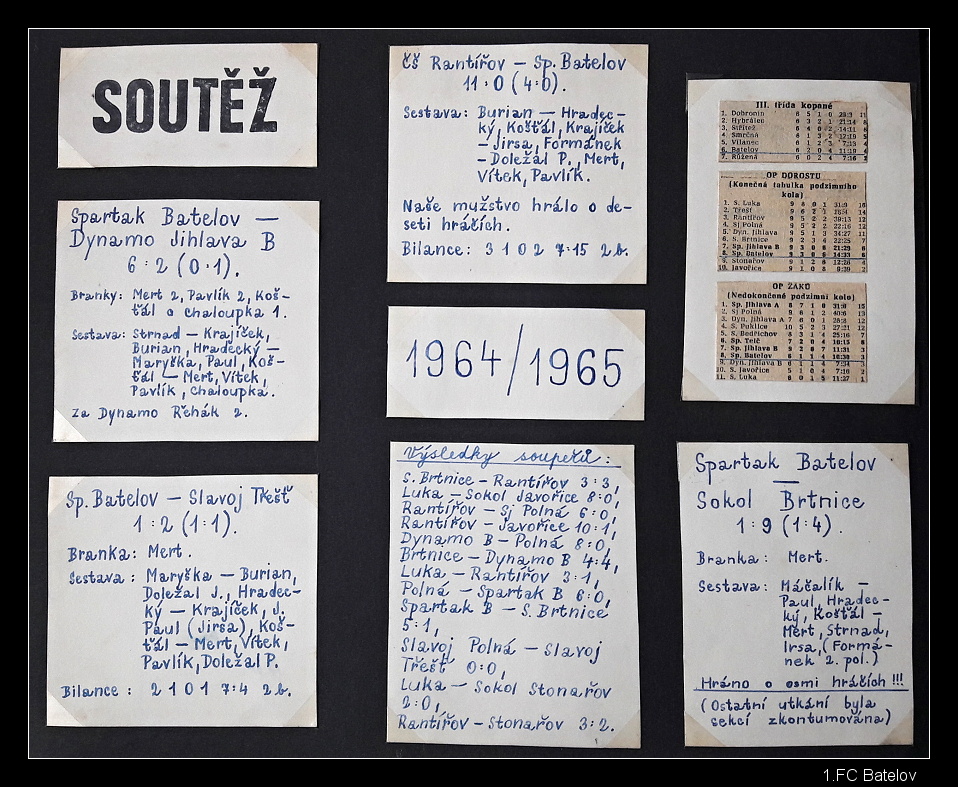 SOUTĚŽ
Spartak Batelov —
Dynamo Jihlava B
6:2 (0:1).
Branky: Mert 2, Pavlík 2, Koš-
ťál a Chaloupka 1.
Sestava: Strnad — Krajíček,
Burian, Hradecký —
Maryška, Paul, Koš-
ťál — Mert, Vítek,
Pavlík, Chaloupka.
Za Dynamo Řehák 2.
Sp. Batelov — Slavoj Třešť
1:2 (1:1).
Branka: Mert.
Sestava: Maryška — Burian,
Doležal J., Hradec-
ký — Krajíček, J.
Paul (Jirsa), Koš-
ťál — Mert, Vítek,
Pavlík, Doležal P.
Bilance: 2 1 0 1 7:4 2b.
ČŠ Rantířov — Sp. Batelov
11:0 (4:0).
Sestava: Burian — Hradec-
ký, Košťál, Krajíček
— Jirsa, Formánek
— Doležal P., Mert,
Vítek, Pavlík.
Naše mužstvo hrálo o de-
seti hráčích.
Bilance: 3 1 0 2 7:15 2b.
1964/1965
Výsledky soupeřů:
S. Brtnice - Rantířov 3:3,
Luka - Sokol Javořice 8:0,
Rantířov - Sj Polná 6:0,
Rantířov - Javořice 10:1,
Dynamo B - Polná 8:0,
Brtnice - Dynamo B 4:4,
Luka - Rantířov 3:1,
Polná - Spartak B 6:0,
Spartak B - S. Brtnice
5:1,
Slavoj Polná - Slavoj
Třešť 0:0,
Luka - Sokol Stonařov
2:0,
Rantířov - Stonařov 3:2.
III. třída kopané
1. Dobronín 6 5 1 0 11
2. Hybrálec 6 3 2 1 21:14 8
3. Střítež 6 4 0 2 14:11 8
4. Smrčná 6 1 3 2
5. Vílanec 6 1 2 3
6. Batelov 6 2 0 4 11:19 4
7. Růžená 6 0 2 4 7:16 2
OP DOROSTU
(Konečná tabulka podzimního
kola)
1. S. Luka 9 8 0 1 31:9 16
2. Třešť 9 6 2 1 14
3. Rantířov 9 5 2 2 39:13 12
4. Sj Polná 9 5 2 2 22:16 12
5. Dyn. Jihlava 9 5 1 3 34:27 11
6. S. Brtnice 9 2 3 4 22:25 7
7. Sp. Jihlava B 9 3 0 6 21:29 6
8. Sp. Batelov 9 3 0 6 14:33 6
9. Stonařov 9 1 2 6 12:26 4
10. Javořice 9 1 0 8 9:39 2
OP ŽÁKŮ
(Nedokončené podzimní kolo)
1. Sp. Jihlava A 8 7 1 0 31:6 15
2. Sj Polná 9 6 1 2 40:6 13
3. Dyn. Jihlava A 7 6 0 1 12
4. S. Puklice 10 5 2 3 27:21 12
5. S. Bedřichov 8 3 1 4 25:16 7
6. Sp. Telč 7 2 4 8
7. Sp. Jihlava B 9 2 0 7 11:31
8. Sp. Batelov 6 1 1 4
9. Dyn. Jihlava B 6 1 1 4
10. S. Javořice 5 1 0 4 7:16 2
11. S. Luka 6 0 1 5 11:27 1
Spartak Batelov
—
Sokol Brtnice
1:9 (1:4).
Branka: Mert.
Sestava: Máčalík —
Paul, Hradec-
ký, Košťál —
Mert, Strnad,
Irsa, (Formá-
nek 2. pol.)
Hráno o osmi hráčích!!!
(Ostatní utkání byla
sekcí zkontumována)
1.FC Batelov